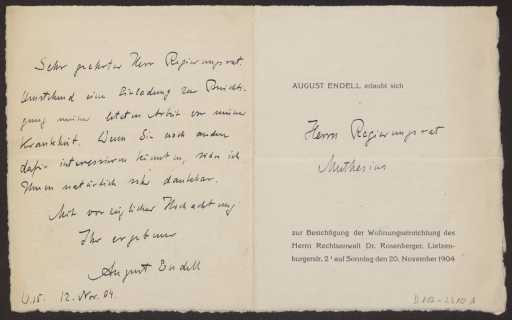 Sehr geehrter Herr Regierungsrat.
Umstehend eine Einladung zur Besichti-
gung meiner letzten Arbeit vor meiner
Krankheit. Wenn Sie noch andere
dafür interessieren könnten, wäre ich
Ihnen natürlich sehr dankbar.
Mit vorzüglicher Hochachtung
Ihr ergebener
August Endell
12. Nov. 04.
AUGUST ENDELL erlaubt sich
Herrn Regierungsrat
Muthesius
zur Besichtigung der Wohnungseinrichtung des
Herrn Rechtsanwalt Dr. Rosenberger, Lietzen-
burgerstr. 2 I auf Sonntag den 20. November 1904